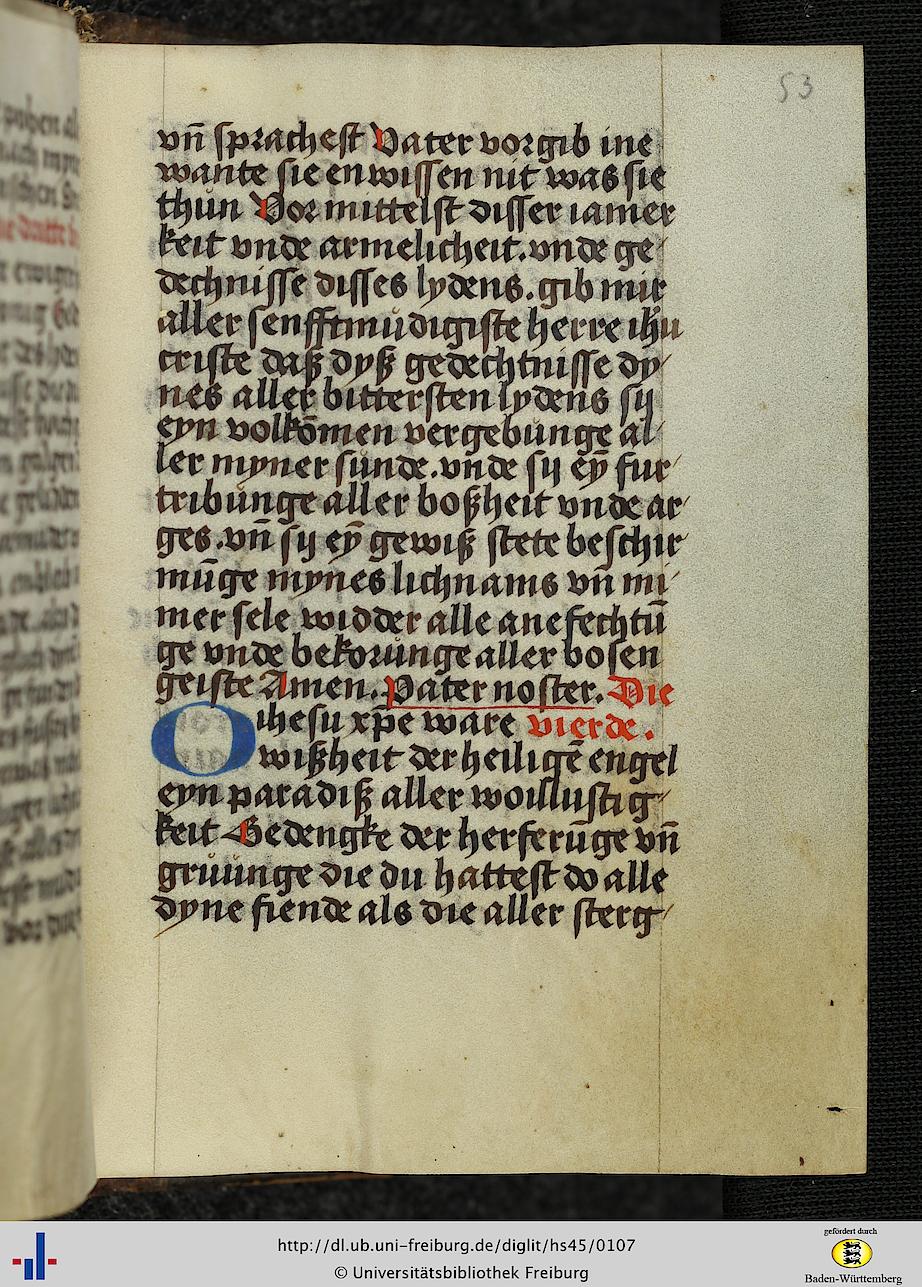 53
vn̄ sprachest Vater vorgib ine
wante sie enwissen nit was sie
thůn Vor mittelst disser iamer
keit vnde armelicheit. vnde ge
dechnisse disses lydens. gib mir
aller senfftmůdigiste herre ih̄u
criste daß dyß gedechtnisse dy
nes aller bittersten lydens sij
eyn volkōmen vergebůnge al
ler myner sůnde. vnde sij eȳ fur
tribůnge aller boßheit vnde ar
ges. vn̄ sij eȳ gewiß stete beschir
mūge mynes lichnams vn̄ mi
mer sele widder alle anefechtū
ge vnde bekorůnge aller bosen
geiste Amen. Pater noster. Die
O ihesu xp̄e ware vierde.
wißheit der heiligē engel
eyn paradiß aller woillustig
keit Gedengke der herferūge vn̄
grůůnge die du hattest do alle
dyne fiende als die aller sterg
http://dl.ub.uni-freiburg.de/diglit/hs45/0107
© Universitätsbibliothek Freiburg
gefördert durch
Baden-Württemberg